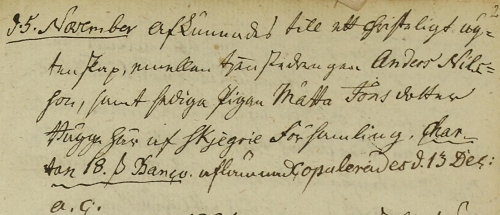 d 5. November afkunnades till ett christeligt äg-
tenskap, emellan tjenstedrengen Anders Nils-
son, samt sediga Pigan Mätta Töns dotter
bägge här af Skjegrie Församling. Char-
tan 18. ß Banco. aflämnad, Copulerades d. 13 Dec:
a. c.